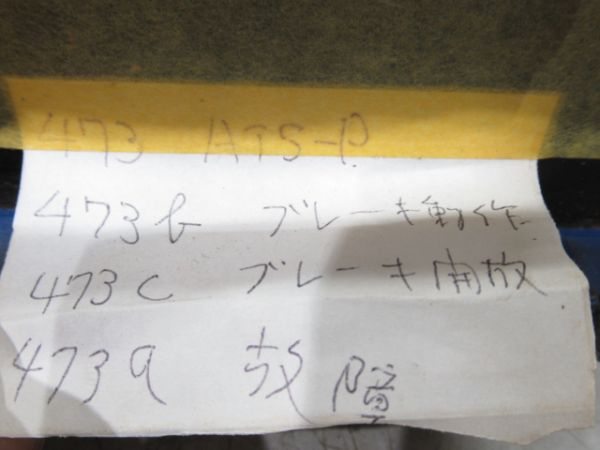 473 ATS-P
473b ブレーキ動作
473c ブレーキ開放
473a 故障